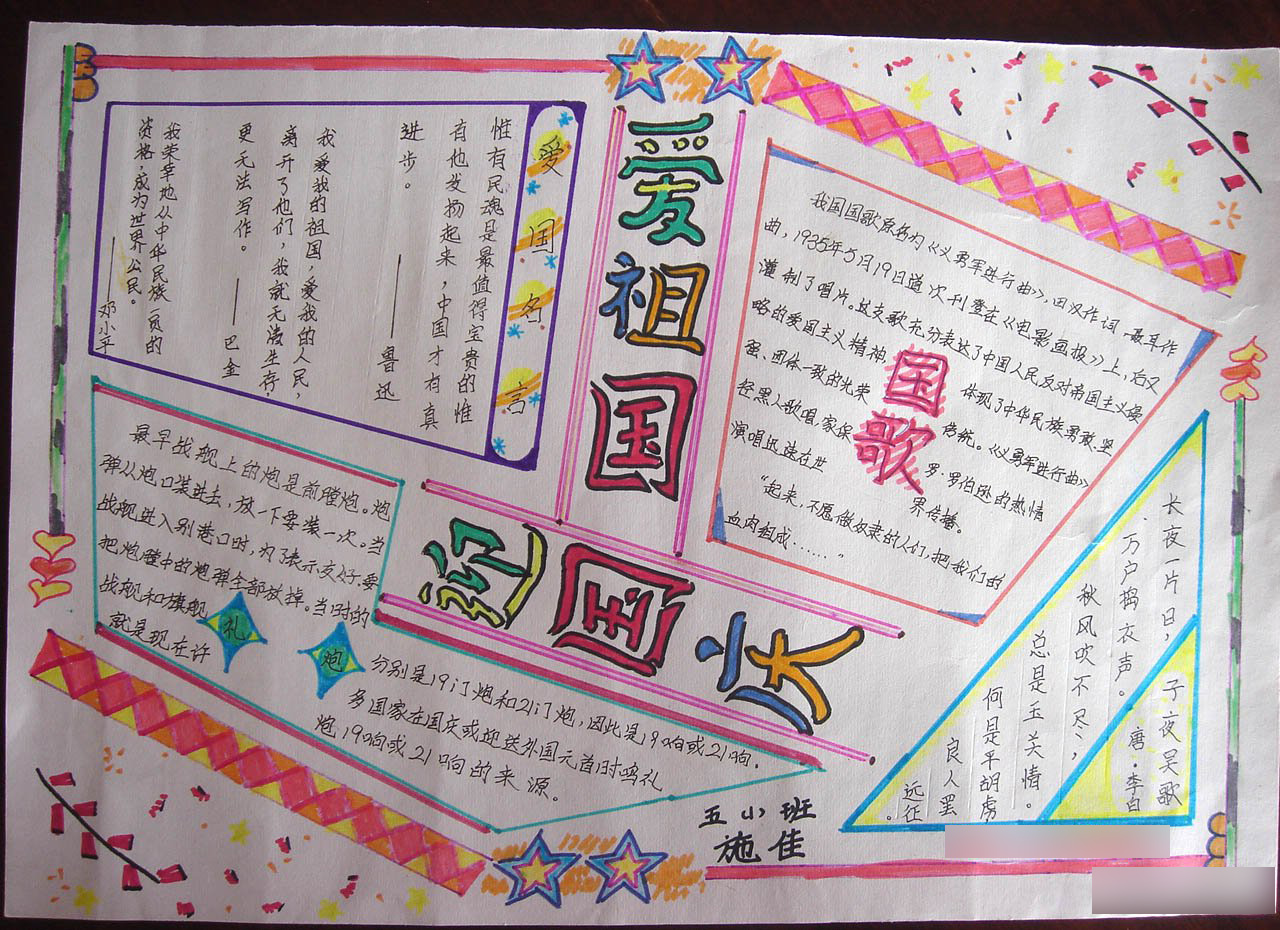 爱祖国
迎国庆
爱国名言
惟有民魂是最值得宝贵的惟
有他发扬起来,中国才有真
进步。——鲁迅
我爱我的祖国,爱我的人民,
离开了他们,我就无法生存,
更无法写作。——巴金
我荣幸地从中华民族一员的
资格,成为世界公民。
——邓小平
国歌
我国国歌原名为《义勇军进行曲》,田汉作词 聂耳作
曲,1935年5月19日道次刊登在《电影画报》上,后又
灌制了唱片。这支歌充分表达了中国人民反对帝国主义侵
略的爱国主义精神,体现了中华民族勇敢、坚
强、团体一致的光荣传统。《义勇军进行曲》
经黑人歌唱家保罗·罗伯逊的热情
演唱迅速在世界传播。
“起来,不愿做奴隶的人们,把我们的
血肉组成……”
礼炮
最早战舰上的炮是前膛炮。炮
弹从炮口装进去,放一下要装一次。当
战舰进入别港口时,为了表示友好,要
把炮膛中的炮弹全部放掉。当时的
战舰和旗舰
分别是19门炮和21门炮,因此是19响或21响。
就是现在许
多国家在国庆或迎送外国元首时鸣礼
炮19响或21响的来源。
子夜吴歌
唐·李白
长夜一片日,
万户捣衣声。
秋风吹不尽,
总是玉关情。
何是平胡虏
良人罢
远征。
五小班
施佳